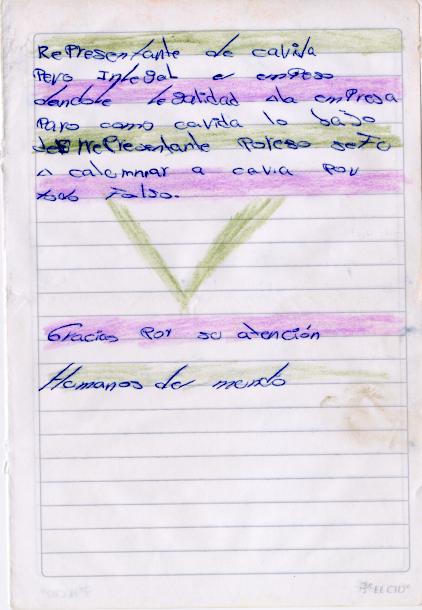 Representante de cavida
Pero Inlegal e empeso
dandole legalidad ala empresa
Paro como cavida lo bajo
representante Poreso se
a calemniar a cavia por
falso.
Gracias Por su atención
Humanos del mundo
ELCID